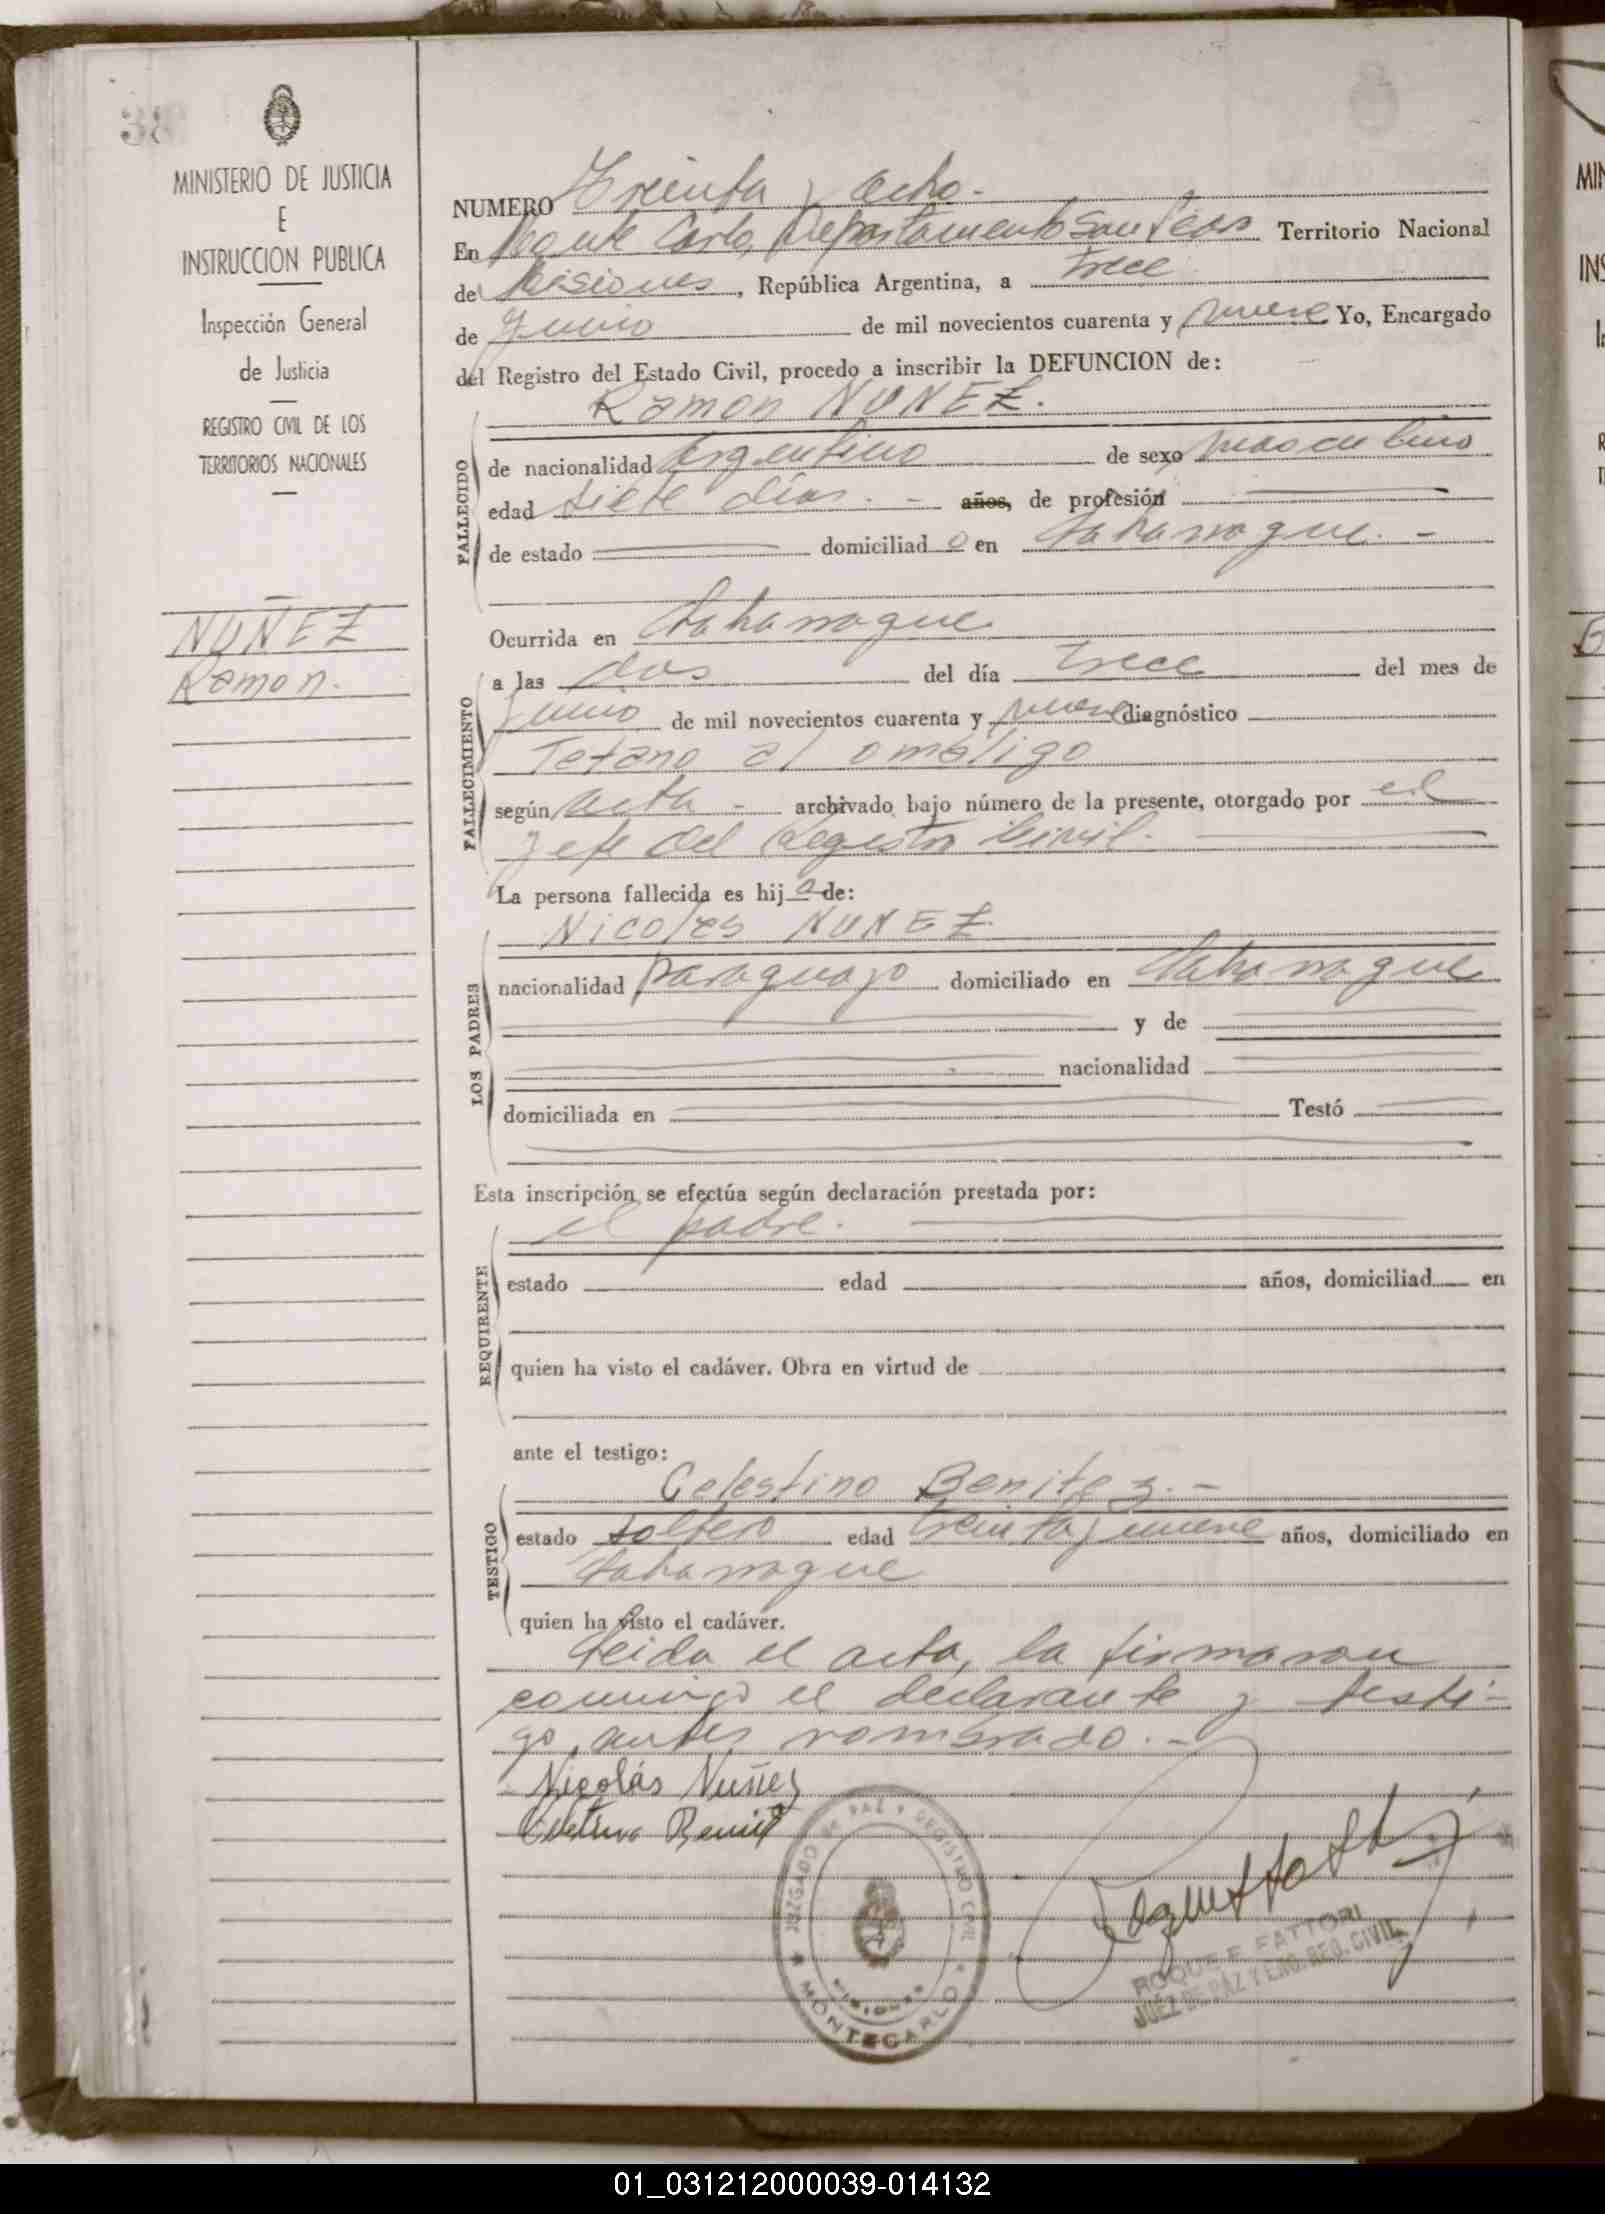 38
MINISTERIO DE JUSTICIA
E
INSTRUCCION PUBLICA
Inspección General
de Justicia
REGISTRO CIVIL DE LOS
TERRITORIOS NACIONALES
NUÑEZ
Ramon.
NUMERO Treinta y ocho.-
En Monte Carlo, Departamento San Territorio Nacional
de Misiones, República Argentina, a trece
de Junio de mil novecientos cuarenta y nueve Yo, Encargado
del Registro del Estado Civil, procedo a inscribir la DEFUNCION de:
FALLECIDO
Ramon NUÑEZ.
de nacionalidad Argentino de sexo masculino
edad siete días. - años, de profesión
de estado domiciliad o en
Ocurrida en
FALLECIMIENTO
a las dos del día trece del mes de
Junio de mil novecientos cuarenta y nueve diagnóstico
Tetano al ombligo
según acta - archivado bajo número de la presente, otorgado por el
Jefe del Registro Civil.
La persona fallecida es hij o de:
LOS PADRES
Nicolas NUÑEZ
nacionalidad paraguayo domiciliado en
y de
nacionalidad
domiciliada en Testó
Esta inscripción se efectúa según declaración prestada por:
REQUIRENTE
el padre.
estado edad años, domiciliad en
quien ha visto el cadáver. Obra en virtud de
ante el testigo:
TESTIGO
Celestino Benitez.-
estado soltero edad treinta y nueve años, domiciliado en
quien ha visto el cadáver.
Leida el acta, la firmaron
conmigo el declarante y testi-
go, antes nombrado.-
Nicolás Nuñez
JUZGADO DE PAZ Y REGISTRO CIVIL
MISIONES
MONTECARLO
ROQUE F. FATTORI
JUEZ DE PAZ Y ENC. REG. CIVIL
01_031212000039-014132